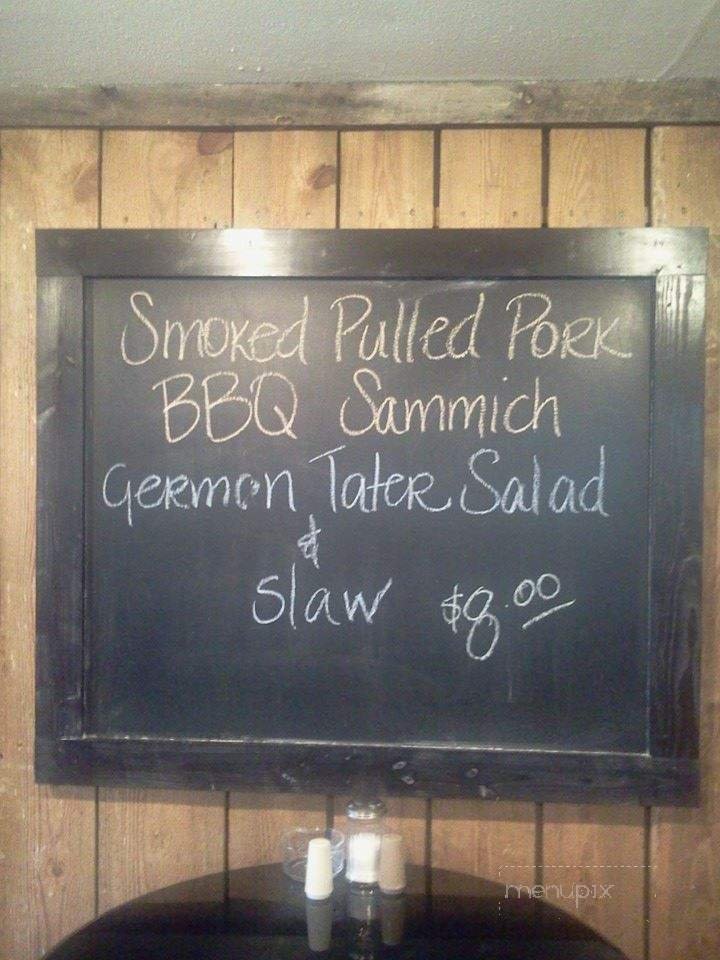 Smoked Pulled Pork
BBQ Sammich
German Tater Salad
&
Slaw $8.00
menupix